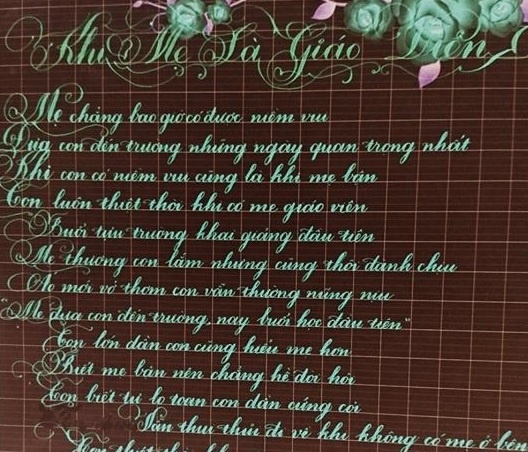 Khi Mẹ Là Giáo Viên
Mẹ chẳng bao giờ có được niềm vui
Đưa con đến trường những ngày quan trọng nhất
Khi con có niềm vui cũng là khi mẹ bận
Con luôn thiệt thòi khi có mẹ giáo viên
Buổi tựu trường khai giảng đầu tiên
Mẹ thương con lắm nhưng cũng thôi đành chịu
Áo mới vở thơm con vẫn thường nũng nịu
"Mẹ đưa con đến trường, nay buổi học đầu tiên"
Con lớn dần con cũng hiểu mẹ hơn
Biết mẹ bận nên chẳng hề đòi hỏi
Con biết tự lo toan con dần cứng cỏi
Vẫn thui thủi đi về khi không có mẹ ở bên